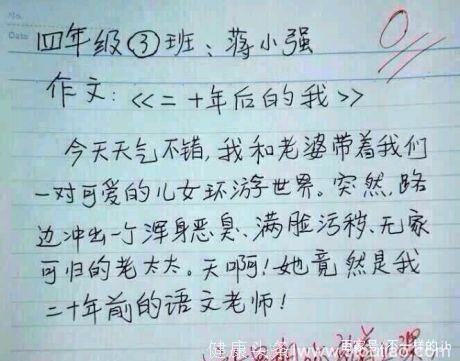 No.
Date
四年级③班：蒋小强
0
作文：《二十年后的我》
今天天气不错，我和老婆带着我们
一对可爱的儿女环游世界。突然，路
边冲出一个浑身恶臭、满脸污秽、无家
可归的老太太。天啊！她竟然是我
二十年前的语文老师！
健康头条